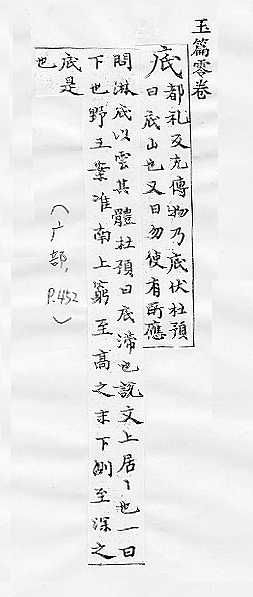 玉篇零卷
底 都礼反尤傳物乃底伏杜預
曰底山也又曰勿使有所應
問湫底以雲其體杜預曰底滯也說文上居〻也一曰
下也野王案淮南上窮至高之末下測至深之
底是
也
(广部,
P.452)